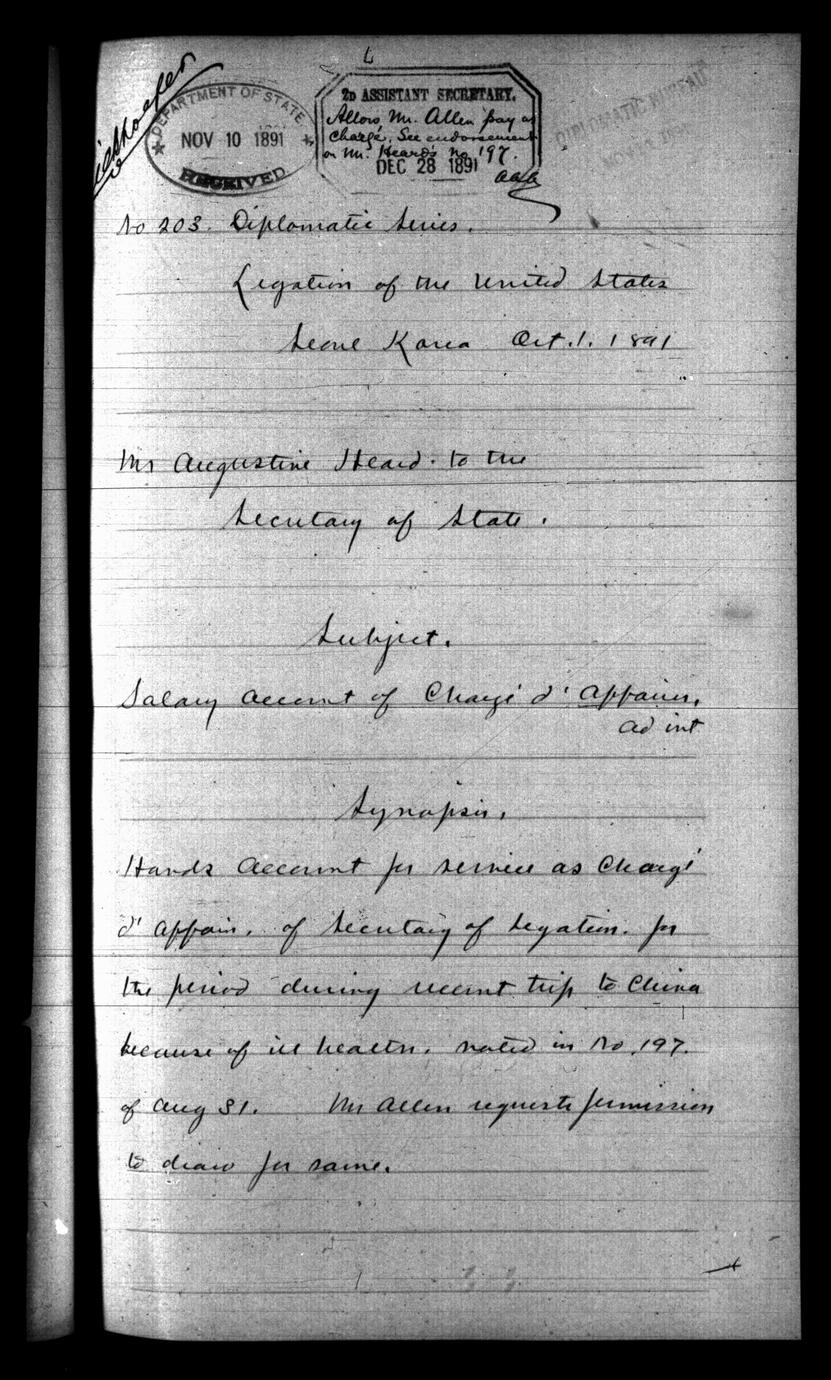 DEPARTMENT OF STATE
NOV 10 1891
RECEIVED
2D ASSISTANT SECRETARY.
Allow Mr. Allen pay as
Chargé. See endorsement
on Mr. Heard's No 197.
DEC 28 1891
aaa
DIPLOMATIC BUREAU
No 203. Diplomatic Series.
Legation of the United States
Seoul Korea Oct. 1. 1891
Mr Augustine Heard. to the
Secretary of State.
Subject.
Salary account of Chargé d' Affaires,
ad int
Synopsis.
Hands account for service as Chargé
d' Affair. of Secretary of Legation. for
the period during recent trip to China
because of ill health. noted in No. 197.
of Aug 31. Mr Allen requests permission
to draw for same.